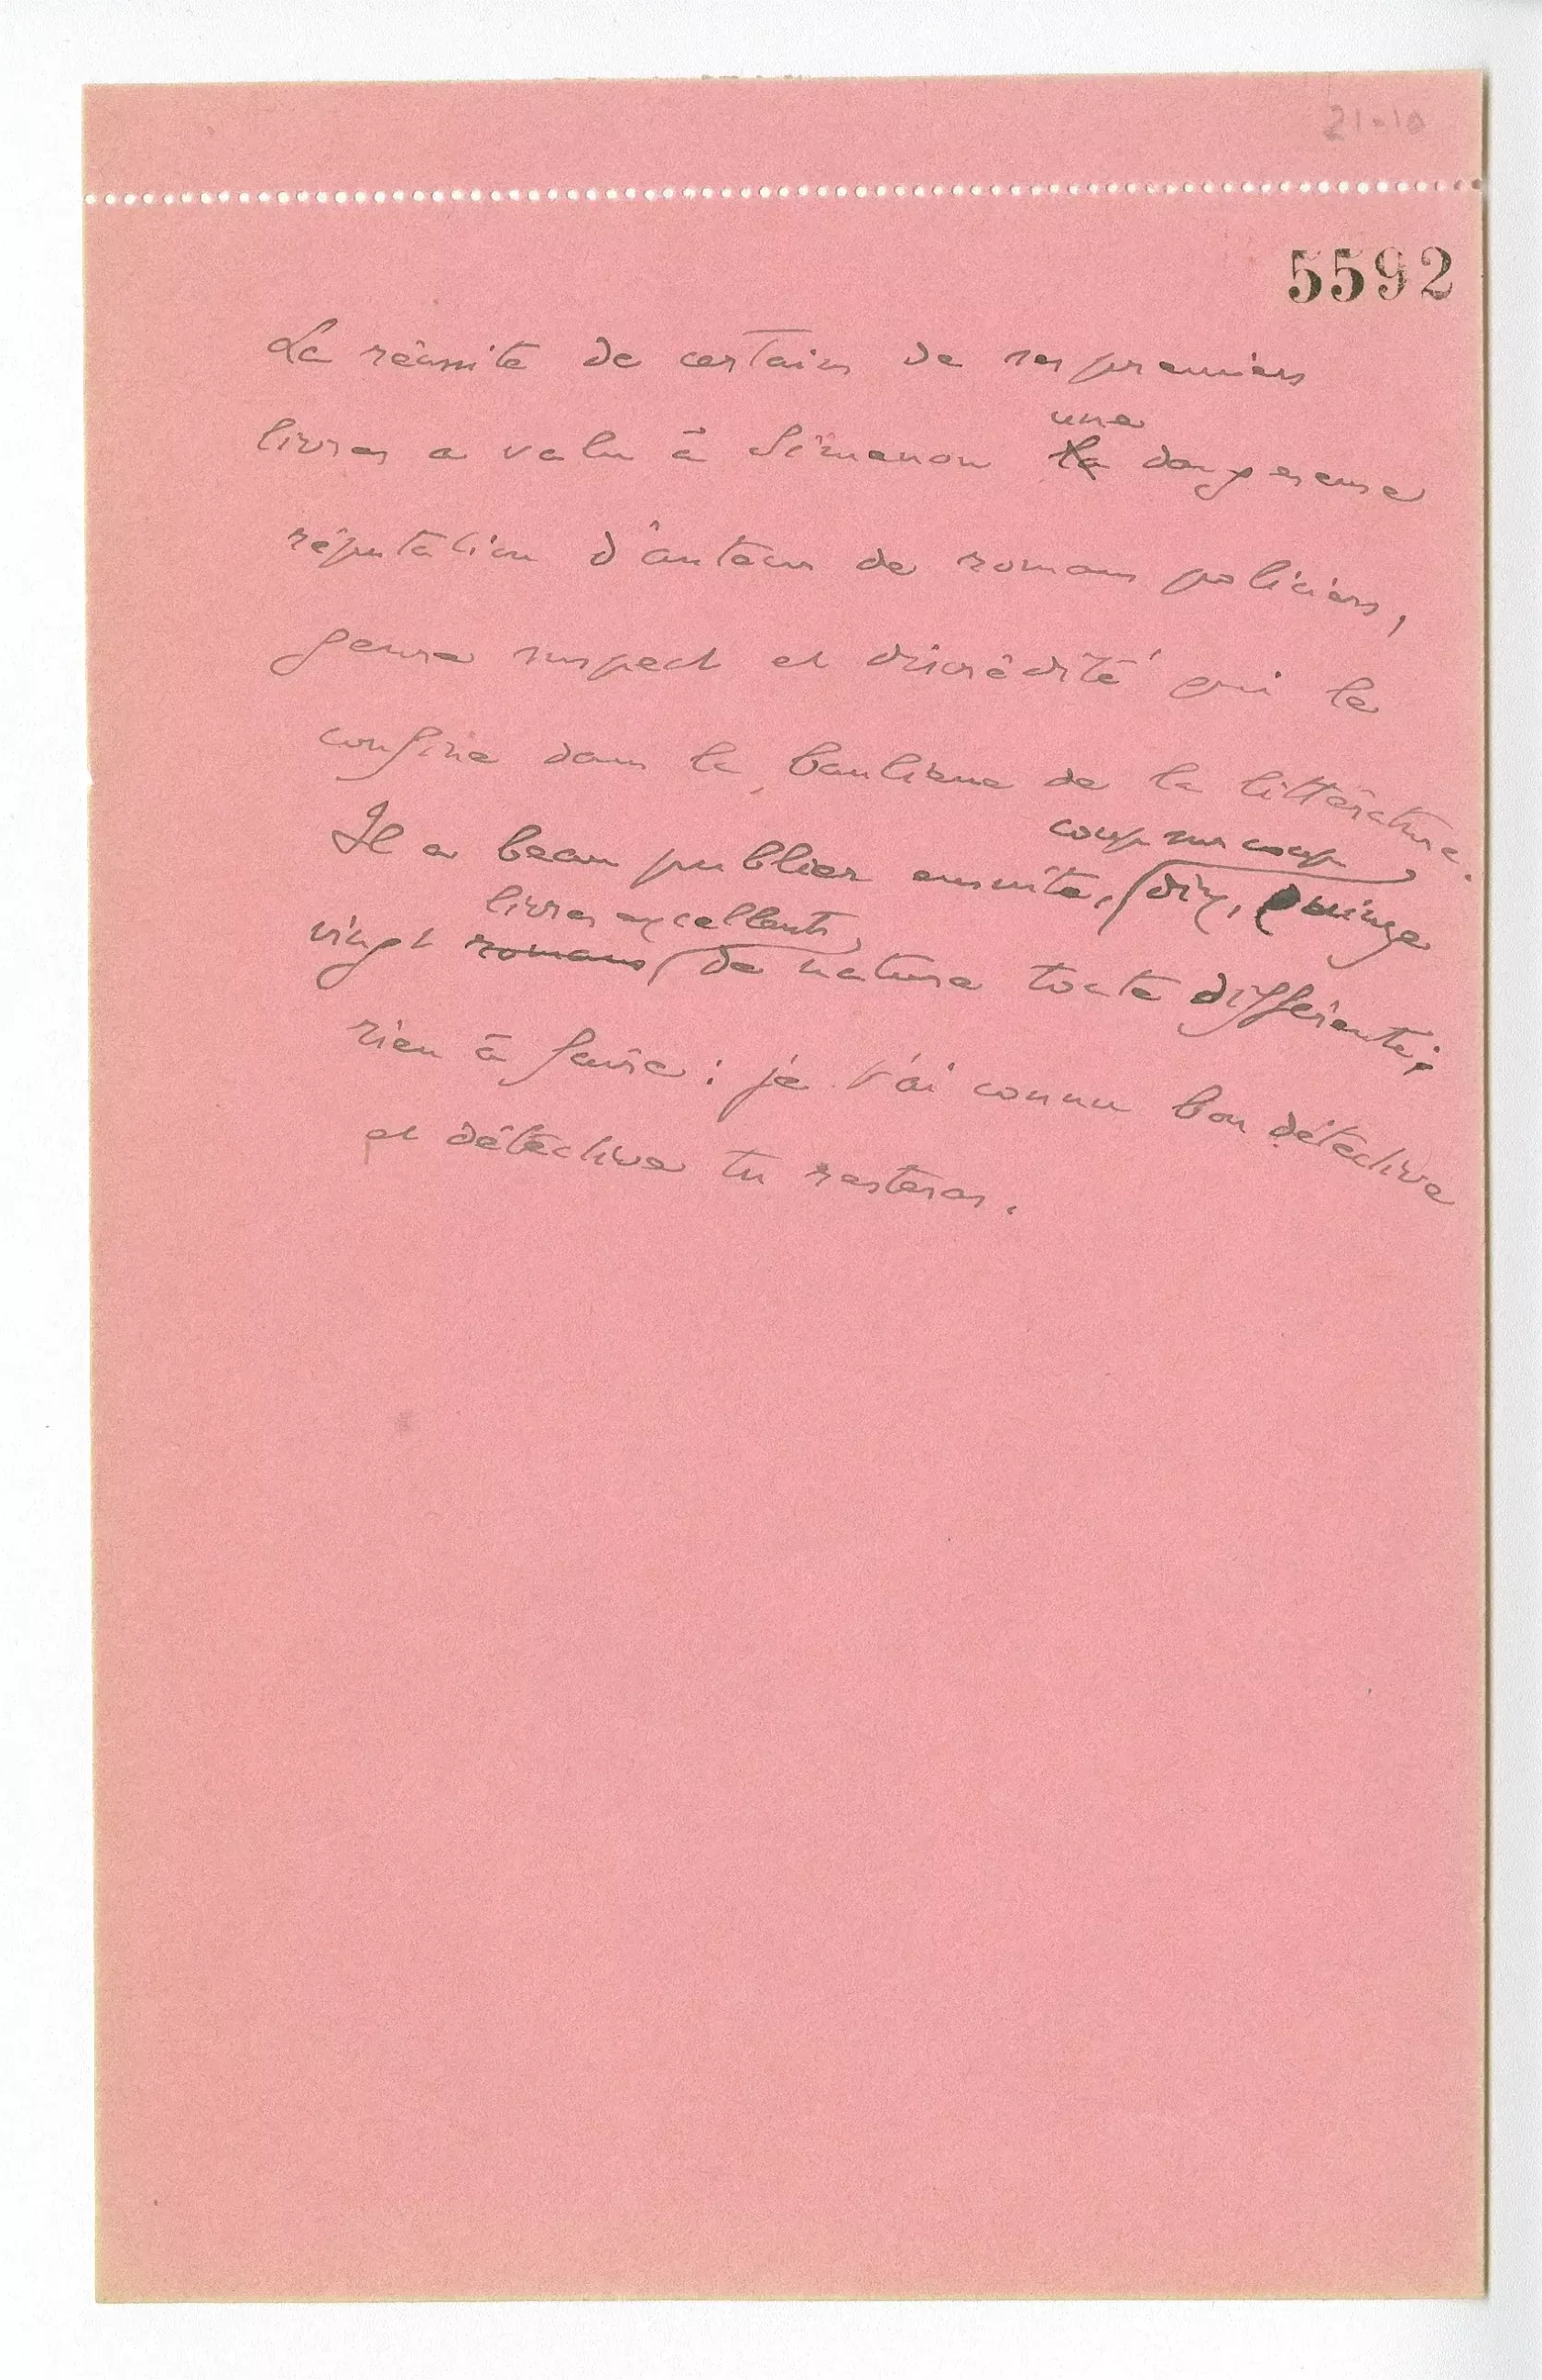 21-10
5592
La réussite de certains de ses premiers
une
livres a valu à Simenon la dangereuse
réputation d'auteur de romans policiers,
genre suspect et discrédité qui le
confine dans la banlieue de la littérature.
coup sur coup
Il a beau publier ensuite, dix, quinze
livres excellents,
vingt romans de nature toute différente;
rien à faire : je t'ai connu bon détective
et détective tu resteras.